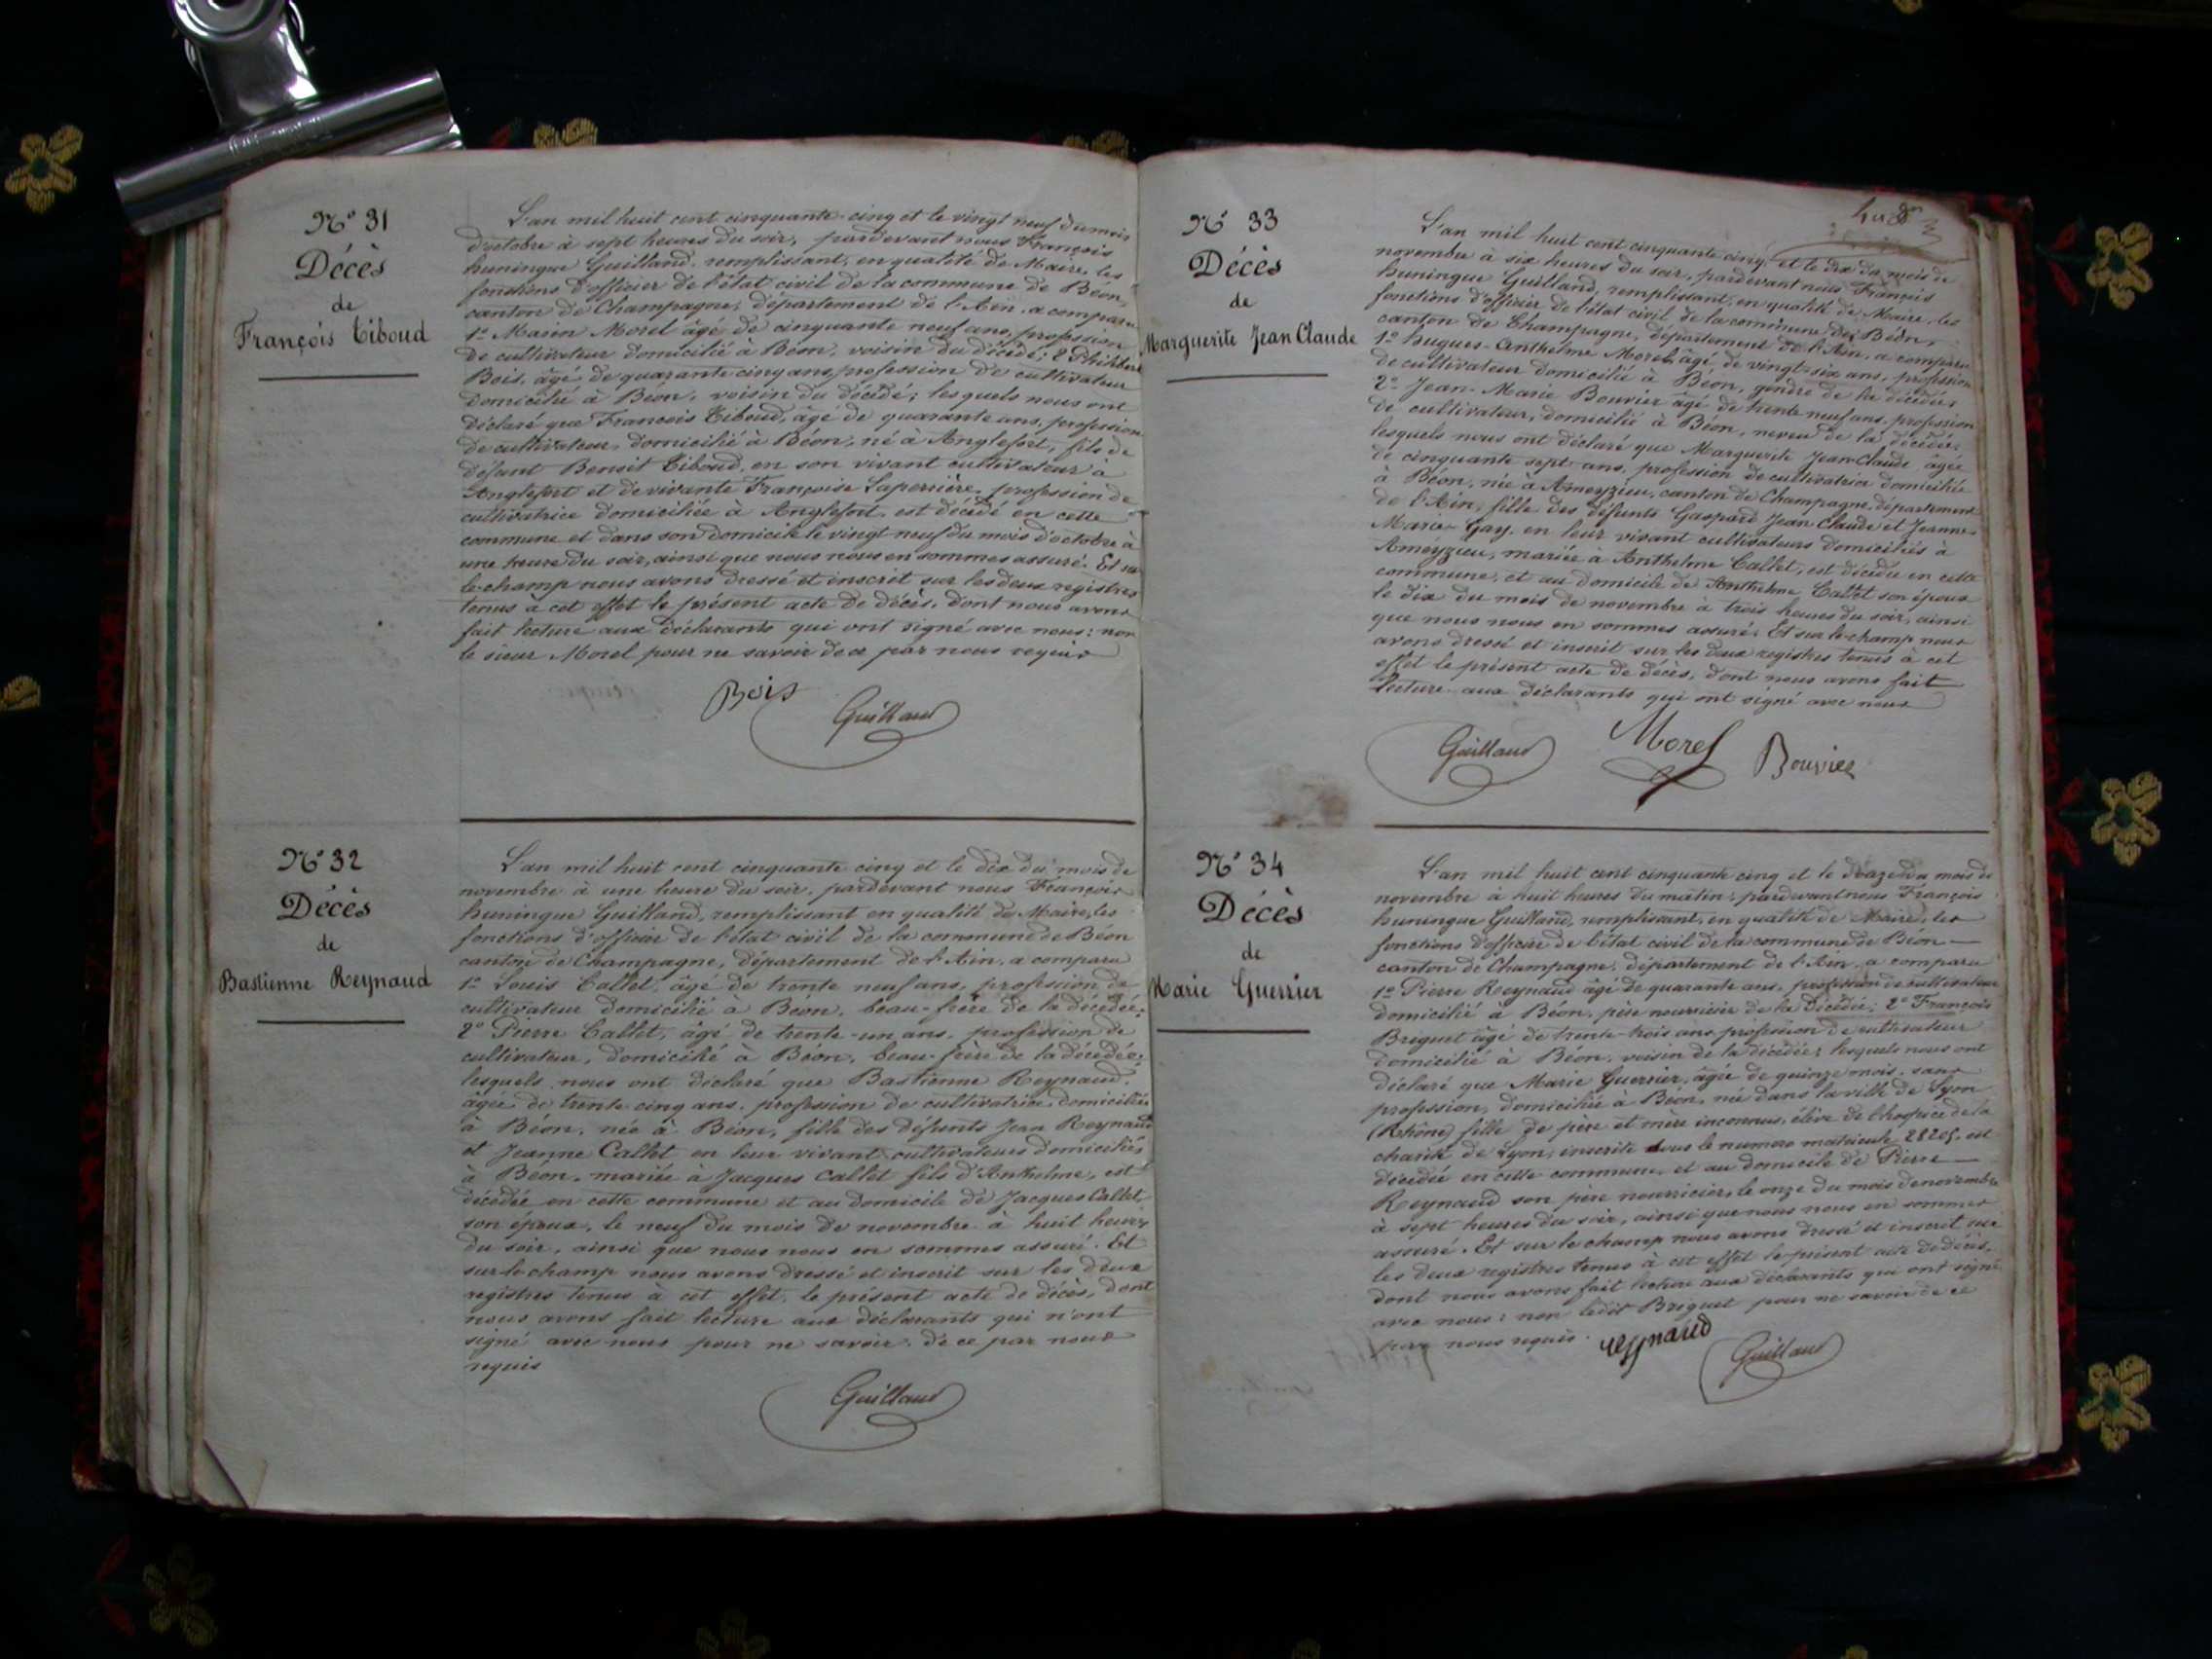 N° 31
Décès
de
François Tiboud
L'an mil huit cent cinquante-cinq et le vingt neuf du mois
d'octobre à sept heures du soir, pardevant nous François
huningue Guilland, remplissant, en qualité de Maire, les
fonctions d'officier de l'état civil de la commune de Béon,
canton de Champagne, département de l'Ain, a comparu
1° Marin Morel âgé de cinquante neuf ans, profession
de cultivateur domicilié à Béon, voisin du décédé; 2° Philibert
Bois, âgé de quarante cinq ans, profession de cultivateur
domicilié à Béon, voisin du décédé; lesquels nous ont
déclaré que François Tiboud, âgé de quarante ans, profession
de cultivateur, domicilié à Béon, né à Anglefort, fils de
défunt Benoit Tiboud, en son vivant cultivateur à
Anglefort et de vivante Françoise Laperrière, profession de
cultivatrice domiciliée à Anglefort, est décédé en cette
commune et dans son domicile le vingt neuf du mois d'octobre à
une heure du soir, ainsi que nous nous en sommes assuré. Et sur
le champ nous avons dressé et inscrit sur les deux registres
tenus à cet effet le présent acte de décès, dont nous avons
fait lecture aux déclarants qui ont signé avec nous: non
le sieur Morel pour ne savoir de ce par nous requis
Bois
Guilland
N° 32
Décès
de
Bastienne Reynaud
L'an mil huit cent cinquante cinq et le dix du mois de
novembre à une heure du soir, pardevant nous François
huningue Guilland, remplissant en qualité de Maire, les
fonctions d'officier de l'état civil de la commune de Béon
canton de Champagne, département de l'Ain, a comparu
1° Louis Callet, âgé de trente neuf ans, profession de
cultivateur domicilié à Béon, beau-frère de la décédée;
2° Pierre Callet, âgé de trente-un ans, profession de
cultivateur, domicilié à Béon, beau-frère de la décédée;
lesquels nous ont déclaré que Bastienne Reynaud,
âgée de trente cinq ans, profession de cultivatrice domiciliée
à Béon, née à Béon, fille des défunts Jean Reynaud
et Jeanne Callet en leur vivant cultivateurs domiciliés
à Béon, mariée à Jacques Callet fils d'Anthelme, est
décédée en cette commune et au domicile de Jacques Callet,
son époux, le neuf du mois de novembre à huit heures
du soir, ainsi que nous nous en sommes assuré. Et
sur le champ nous avons dressé et inscrit sur les deux
registres tenus à cet effet, le présent acte de décès, dont
nous avons fait lecture aux déclarants qui n'ont
signé avec nous pour ne savoir, de ce par nous
requis
Guilland
N° 33
Décès
de
Marguerite Jean Claude
L'an mil huit cent cinquante cinq, et le dix du mois de
novembre à six heures du soir, pardevant nous François
huningue Guilland, remplissant, en qualité de Maire, les
fonctions d'officier de l'état civil de la commune de Béon,
canton de Champagne, département de l'Ain, a comparu
1° hugues-Anthelme Morel âgé de vingt-six ans, profession
de cultivateur domicilié à Béon, gendre de la décédée;
2° Jean-Marie Bouvier âgé de trente neuf ans, profession
de cultivateur, domicilié à Béon, neveu de la décédée
lesquels nous ont déclaré que Marguerite Jean-Claude âgée
de cinquante sept ans, profession de cultivatrice domiciliée
à Béon, née à Ameyzieu, canton de Champagne, département
de l'Ain, fille des défunts Gaspard Jean Claude et Jeanne
Marie Gay, en leur vivant cultivateurs domiciliés à
Améyzieu, mariée à Anthelme Callet, est décédée en cette
commune, et au domicile de Anthelme Callet son époux
le dix du mois de novembre à trois heures du soir, ainsi
que nous nous en sommes assuré. Et sur le champ nous
avons dressé et inscrit sur les deux registres tenus à cet
effet le présent acte de décès, dont nous avons fait
lecture aux déclarants qui ont signé avec nous
Guilland
Morel
Bouvier
N° 34
Décès
de
Marie Guerrier
L'an mil huit cent cinquante cinq et le douze du mois de
novembre à huit heures du matin; pardevant nous François
huningue Guilland, remplissant, en qualité de Maire, les
fonctions d'officier de l'état civil de la commune de Béon
canton de Champagne, département de l'Ain, a comparu
1° Pierre Reynaud âgé de quarante ans, profession de cultivateur
domicilié à Béon, père nourricier de la décédée; 2° François
Briguet âgé de trente-trois ans, profession de cultivateur
domicilié à Béon, voisin de la décédée; lesquels nous ont
déclaré que Marie Guerrier, âgée de quinze mois, sans
profession, domiciliée à Béon, née dans la ville de Lyon
(Rhône) fille de père et mère inconnus, élève de l'hospice de la
charité de Lyon, inscrite sous le numero matricule 28205, est
décédée en cette commune, et au domicile de Pierre
Reynaud son père nourricier, le onze du mois de novembre
à sept heures du soir, ainsi que nous nous en sommes
assuré. Et sur le champ nous avons dressé et inscrit sur
les deux registres tenus à cet effet le présent acte de décès,
dont nous avons fait lecture aux déclarants qui ont signé
avec nous: non ledit Briguet pour ne savoir de ce
par nous requis.
reynaud
Guilland